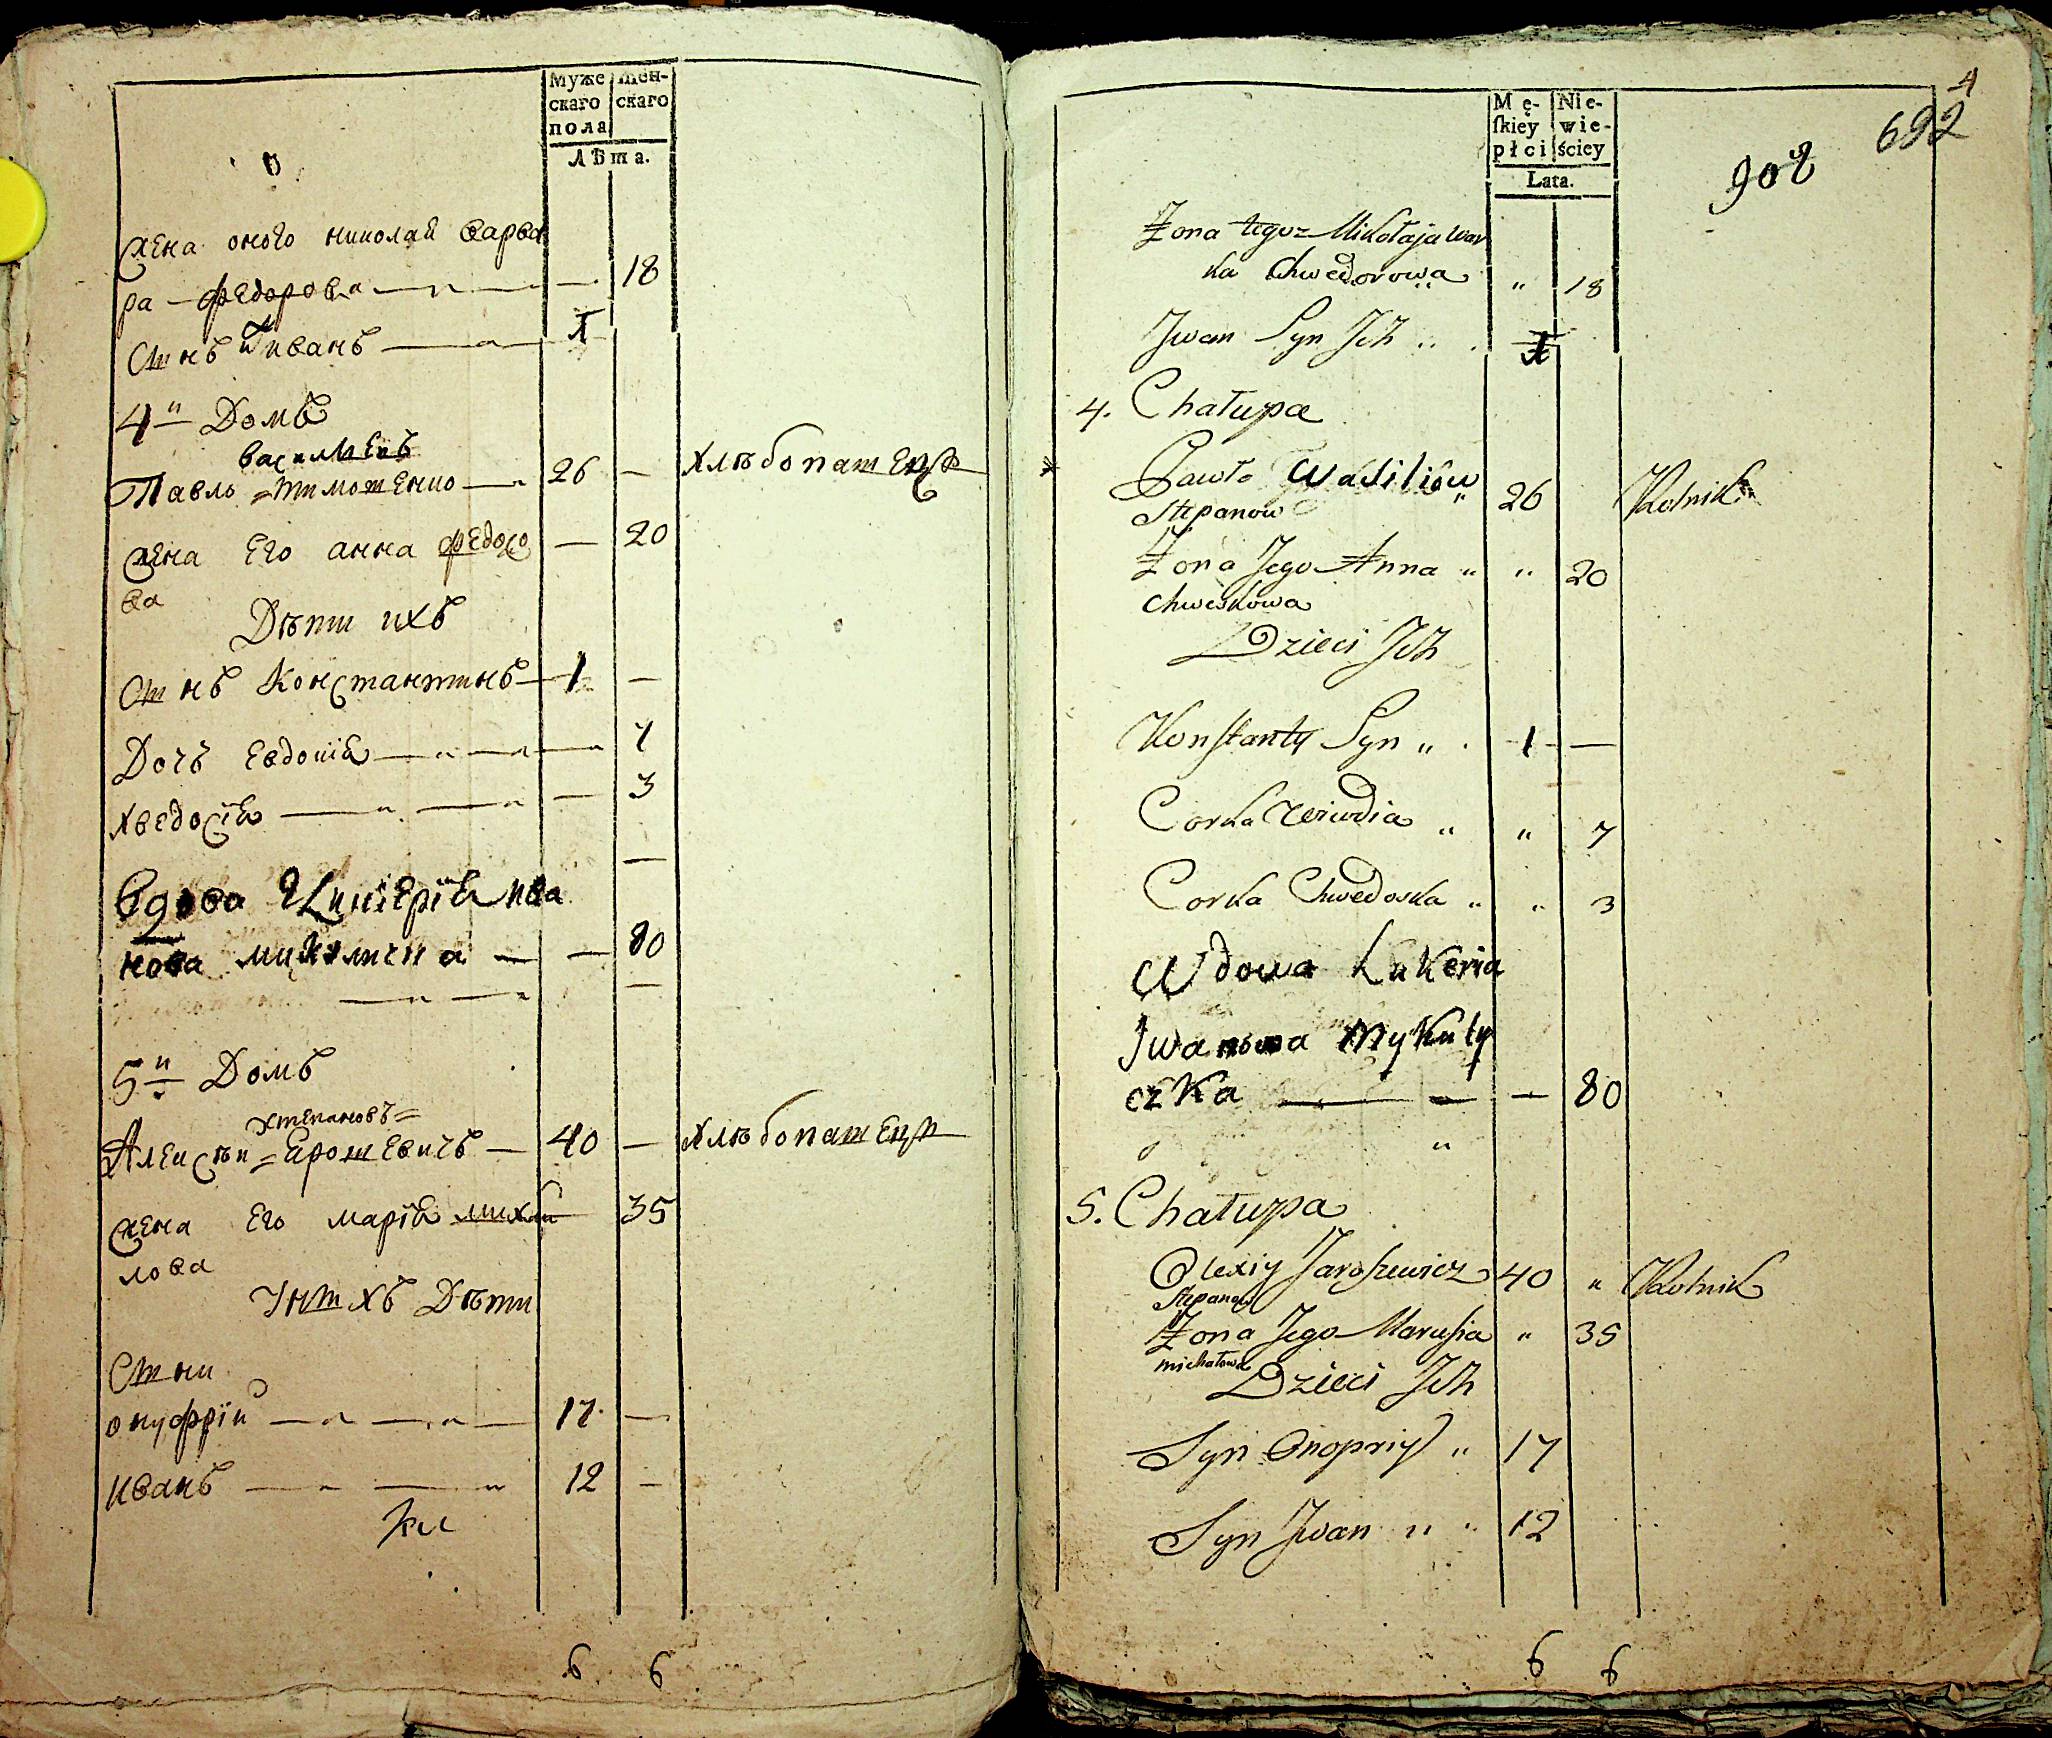 Муже
скаго
пола
Жен-
скаго
Лѣта.
Жена оного николай варва
ра федорова 18
Сынъ Иванъ 1
4й Домъ
василиевъ
Павло = тимошенко 26 — хлѣбопашецъ
жена Его анна федосо — 20
ва
Дѣти ихъ
Сынъ Константинъ 1 —
Дочь Евдокия 7
хведосія — 3
вдова Гликерія ива
нова микитична — — 80
5й Домъ
Степановъ =
Алексѣй = Ярошевичъ — 40 — хлѣбопашецъ
жена Его марія михай 35
лова
У ныхъ Дѣти
Сыни
онуфрій 17 —
иванъ 12 —
6 6
4
692
902
Mę-
ſkiey
płci
Nie-
wie-
ściey
Lata.
Żona tegoz Mikołaja War
ka Chwedorowa " 18
Jwan Syn Jch 1
4. Chałupa
Pawło Wasiliów 26 Rolnik
Stepanow
Żona Jego Anna " " 20
Chweskowa
Dzieci Jch
Konſtanty Syn " 1 —
Corka " " 7
Corka Chwedoska " " 3
Wdowa Lukeria
Jwanowa Mykuty
czka — — — 80
"
5. Chałupa
Olexiy Jaroſzewicz 40 " Rolnik
Stepanow
Żona Jego Maruſia " 35
michałowa
Dzieci Jch
Syn Onopriy " 17
Syn Jwan " " 12
6 6